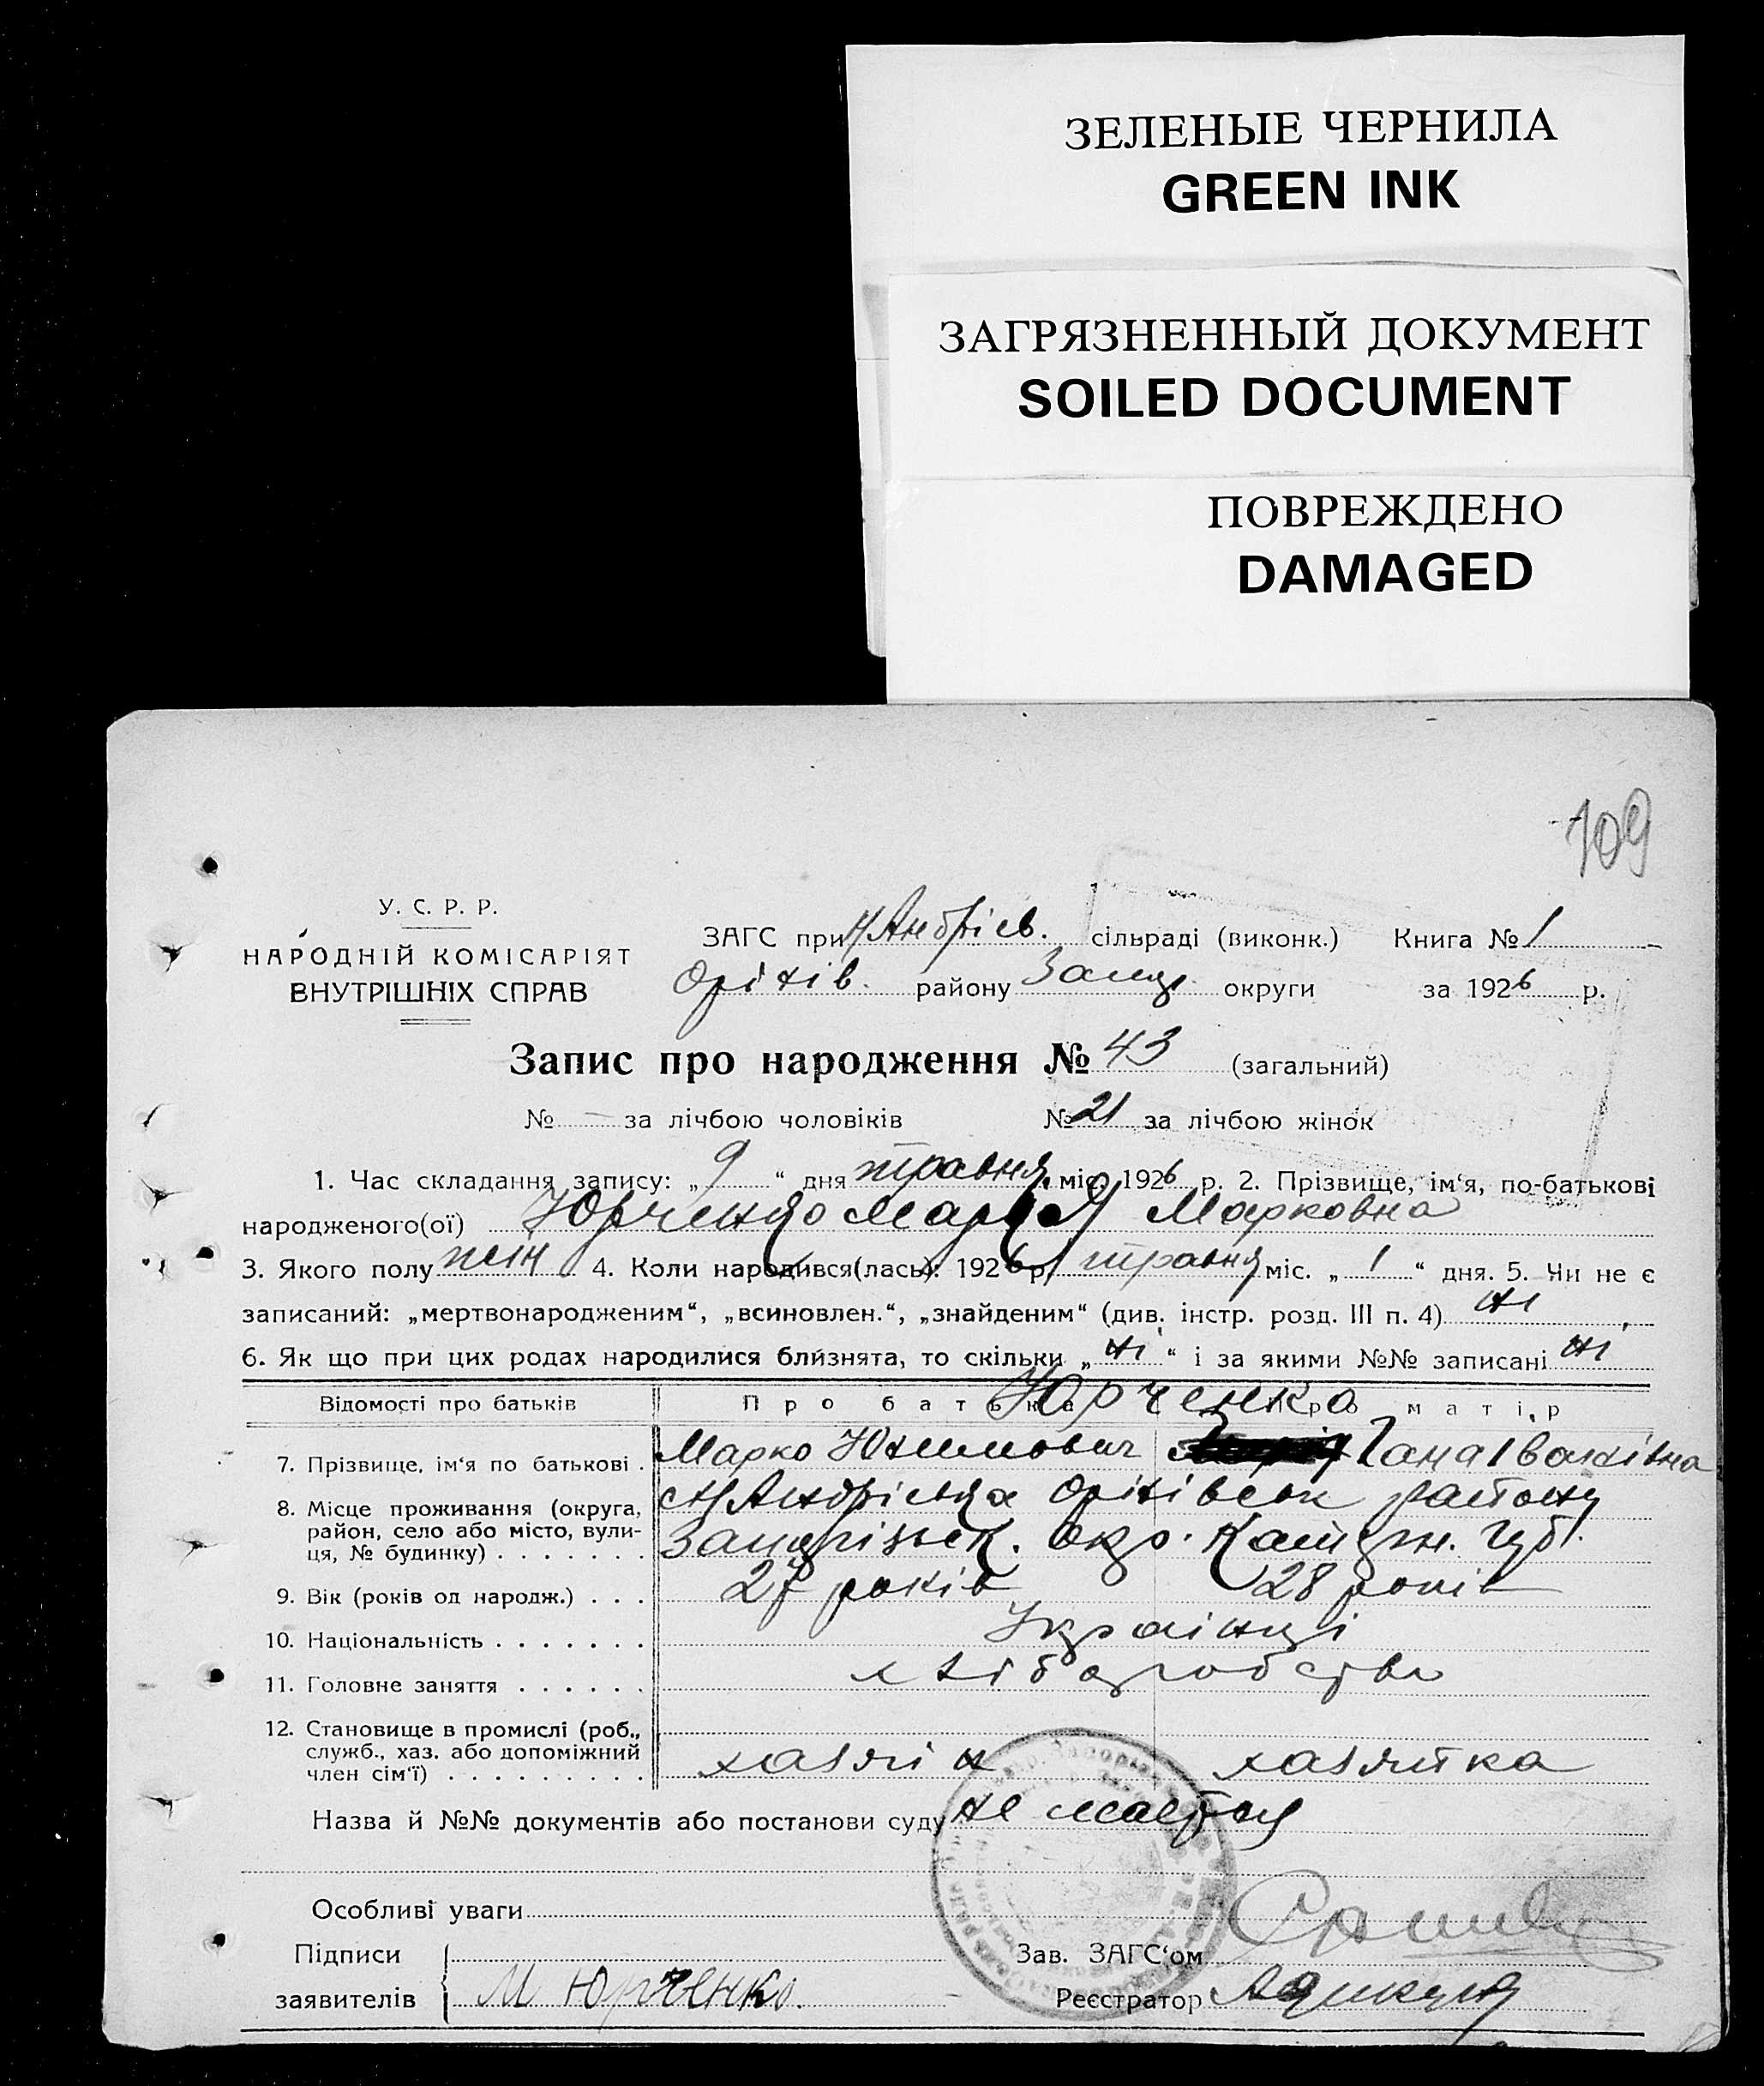 ЗЕЛЕНЫЕ ЧЕРНИЛА
GREEN INK
ЗАГРЯЗНЕННЫЙ ДОКУМЕНТ
SOILED DOCUMENT
ПОВРЕЖДЕНО
DAMAGED
109
У. С. Р. Р.
НАРОДНІЙ КОМІСАРІЯТ
ВНУТРІШНІХ СПРАВ
ЗАГС при Н Андріїв. сільраді (виконк.) Книга № 1
Оріхів. району Запор. округи за 1926 р.
Запис про народження № 43 (загальний)
№ — за лічбою чоловіків № 21 за лічбою жінок
1. Час складання запису: „ 9 “ дня травня міс. 1926 р. 2. Прізвище, ім‘я, по-батькові
народженого(ої) Юрченко Марія Марковна
3. Якого полу жін 4. Коли народився(лась): 1926 р. травня міс. „ 1 “ дня. 5. Чи не є
записаний: „мертвонародженим“, „всиновлен.“, „знайденим“ (див. інстр. розд. III п. 4) ні
6. Як що при цих родах народилися близнята, то скільки „ ні “ і за якими №№ записані ні
Відомості про батьків Про батька Про матір
Юрченко
7. Прізвище, ім‘я по батькові . Марко Юхимович Гана Іванівна
8. Місце проживання (округа, район, село або місто, вули-ця, № будинку) . . . . . . .
Н Андрієвка Оріхівськ району
Запорізьк. Окр. Катерин. губ.
9. Вік (років од народж.) . . . 27 років 28 років
10. Національність . . . . . . . Українці
11. Головне заняття . . . . . . хліборобство
12. Становище в промислі (роб., служб., хаз. або допоміжний член сім‘ї) . . . . . . . . . хазяїн хазяйка
Назва й №№ документів або постанови суду не мається
Особливі уваги
Підписи
заявителів М Юрченко.
Зав. ЗАГС‘ом
Реєстратор